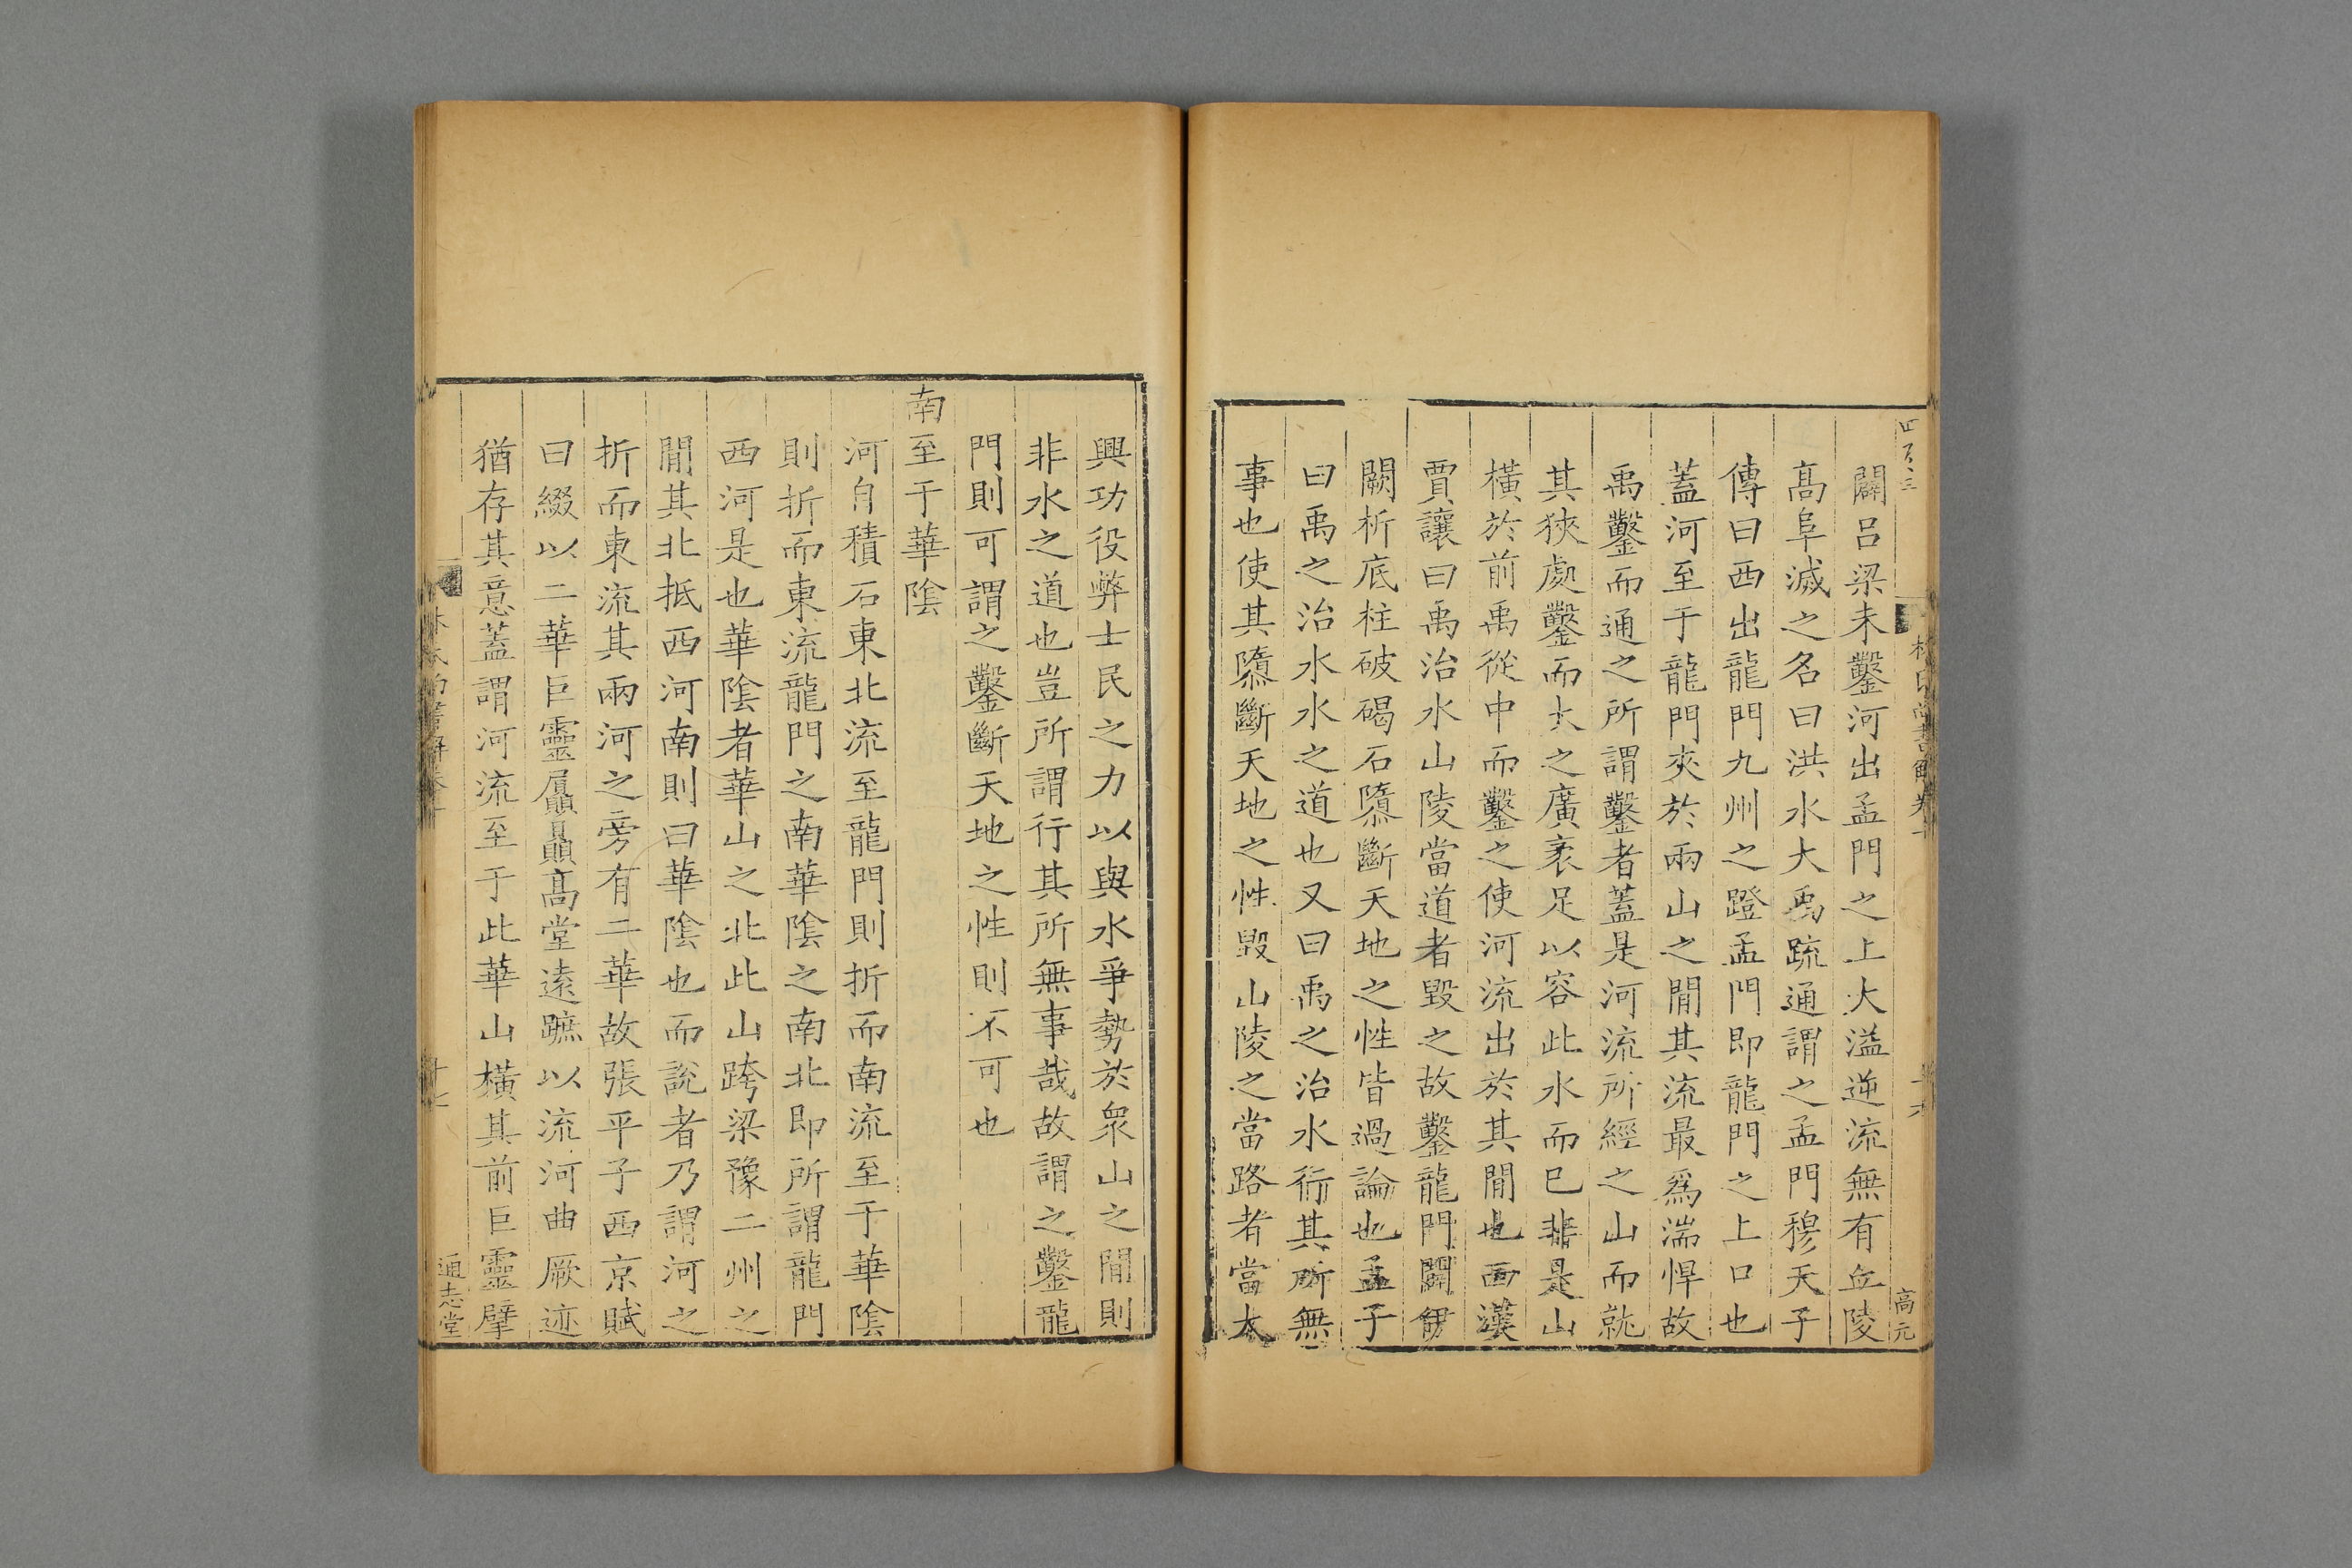 闢呂梁未鑿河出孟門之上大溢逆流無有丘陵
髙阜滅之名曰洪水大禹疏通謂之孟門穆天子
傳曰西出龍門九州之蹬孟門即龍門之上口也
蓋河至于龍門夾於兩山之閒其流最爲湍悍故
禹鑿而通之所謂鑿者蓋是河流所經之山而就
其狹處鑿而大之廣袤足以容此水而已非是山
橫於前禹從中而鑿之使河流出於其閒也西漢
賈讓曰禹治水山陵當道者毀之故鑿龍門闢伊
闕析底柱破碣石隳斷天地之性皆過論也孟子
曰禹之治水水之道也又曰禹之治水行其所無
事也使其隳斷天地之性毀山陵之當路者當大
高元
興功役弊士民之力以與水爭勢於衆山之閒則
非水之道也豈所謂行其所無事哉故謂之鑿龍
門則可謂之鑿斷天地之性則不可也
南至于華陰
河自積石東北流至龍門則折而南流至于華陰
則折而東流龍門之南華陰之南北即所謂龍門
西河是也華陰者華山之北此山跨梁豫二州之
閒其北抵西河南則曰華陰也而說者乃謂河之
折而東流其兩河之旁有二華故張平子西京賦
曰綴以二華巨靈屭贔髙堂遠蹠以流河曲厥迹
猶存其意蓋謂河流至于此華山橫其前巨靈擘
通志堂